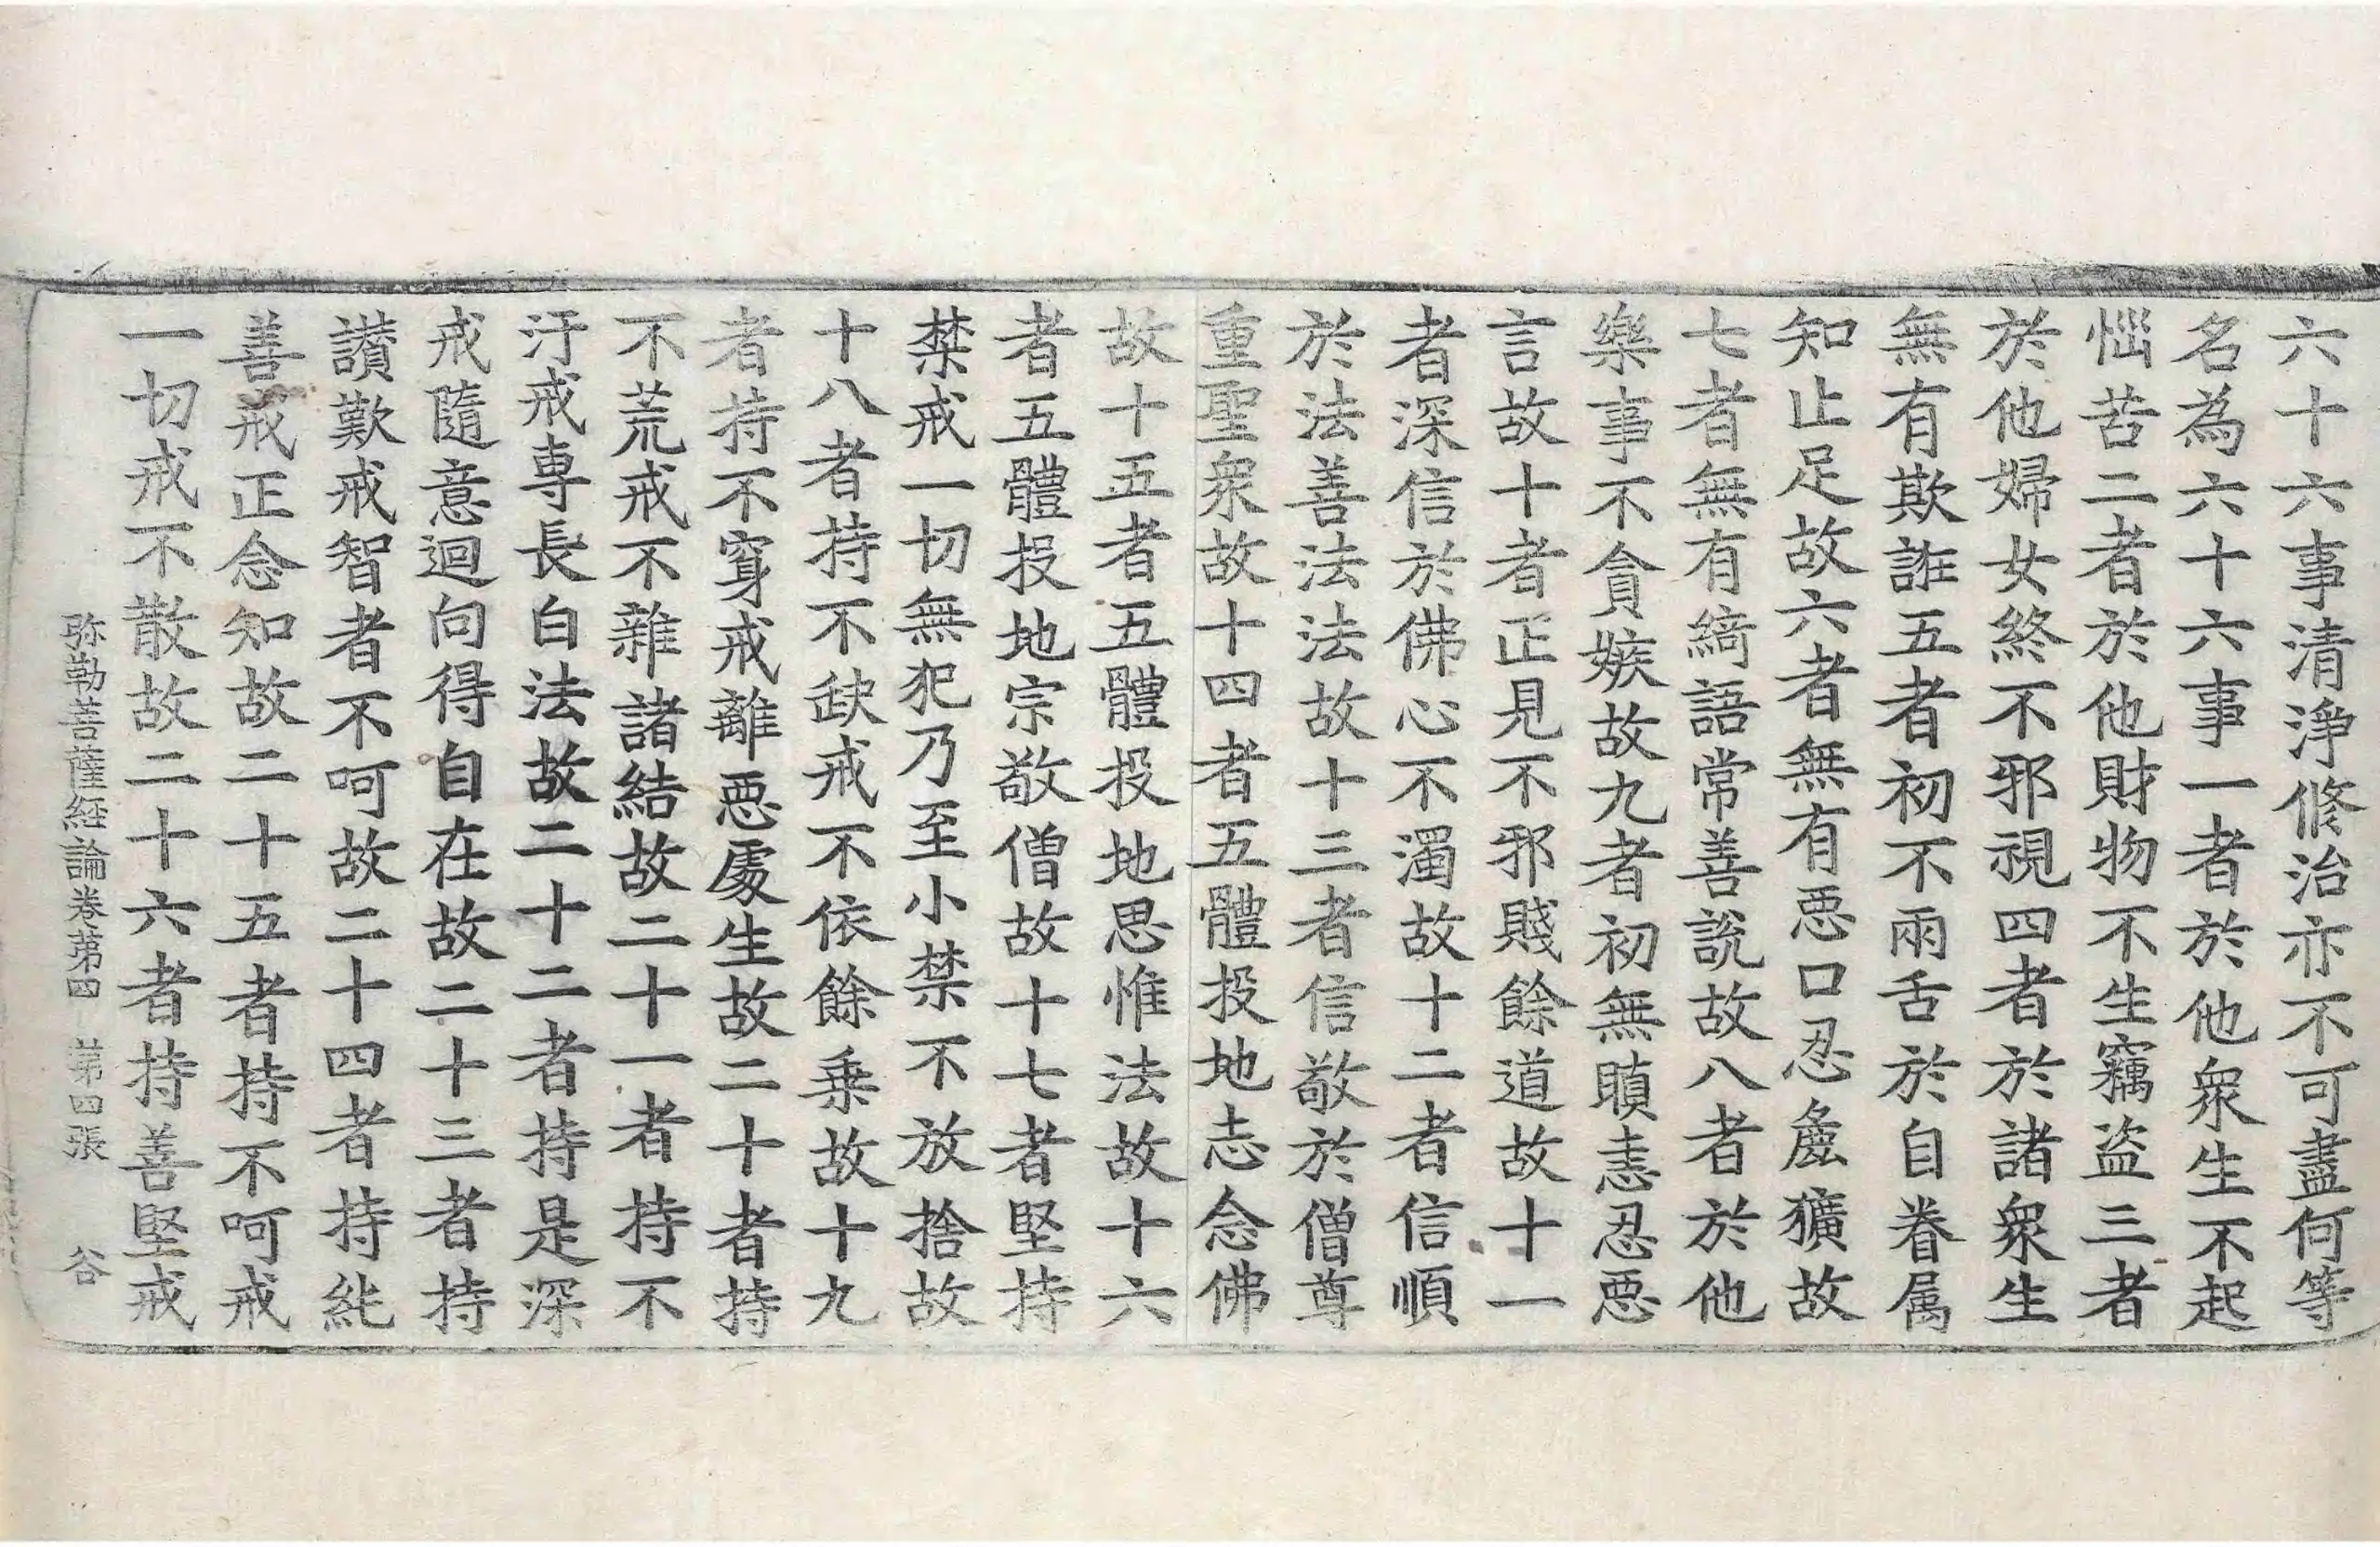 六十六事清淨修治亦不可盡何等
名為六十六事一者於他衆生不起
惱苦二者於他財物不生竊盜三者
於他婦女終不邪視四者於諸衆生
無有欺誑五者初不兩舌於自眷属
知止足故六者無有惡口忍麁獷故
七者無有綺語常善說故八者於他
樂事不貪嫉故九者初無瞋恚忍惡
言故十者正見不邪賤餘道故十一
者深信於佛心不濁故十二者信順
於法善法法故十三者信敬於僧尊
重聖衆故十四者五體投地志念佛
故十五者五體投地思惟法故十六
者五體投地宗敬僧故十七者堅持
禁戒一切無犯乃至小禁不放捨故
十八者持不缺戒不依餘乗故十九
者持不穿戒離惡處生故二十者持
不荒戒不雜諸結故二十一者持不
汙戒専長白法故二十二者持是深
戒隨意迴向得自在故二十三者持
讃歎戒智者不呵故二十四者持純
善戒正念知故二十五者持不呵戒
一切戒不散故二十六者持善堅戒
弥勒菩薩経論卷第四 第四張 谷